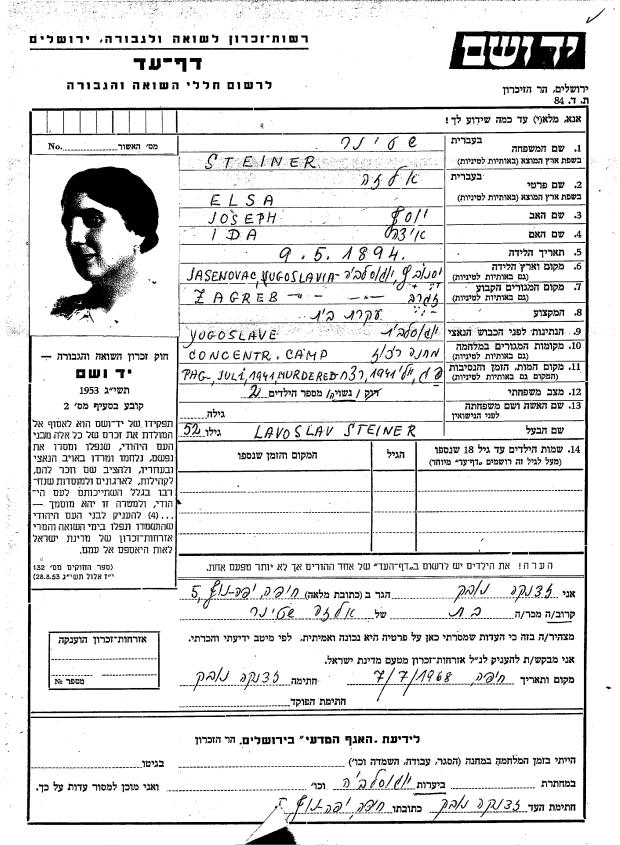 יד ושם
רשות-זכרון לשואה ולגבורה, ירושלים
דף-עד
לרשום חללי השואה והגבורה
ירושלים, הר הזיכרון
ת. ד. 84
אנא, מלא(י) עד כמה שידוע לך!
No. מס' האשור
1. שם המשפחה בעברית שטינר
בשפת ארץ המוצא (באותיות לטיניות) STEINER
2. שם פרטי בעברית אלזה
בשפת ארץ המוצא (באותיות לטיניות) ELSA
3. שם האב JOSEPH יוסף
4. שם האם IDA אידה
5. תאריך הלידה 9.5.1894.
6. מקום וארץ הלידה (גם באותיות לטיניות) JASENOVAC, YUGOSLAVIA יסנובץ, יוגוסלביה
7. מקום המגורים הקבוע (גם באותיות לטיניות) ZAGREB -"- -"- זגרב
8. המקצוע עקרת בית
9. הנתינות לפני הכבוש הנאצי YUGOSLAVE יוגוסלבית
10. מקומות המגורים במלחמה (גם באותיות לטיניות) CONCENTR. CAMP מחנה ריכוז
11. מקום המות, הזמן והנסיבות (המקום גם באותיות לטיניות) PAG, JULI, 1941, MURDERED פג, יולי 1941, רצח
12. מצב משפחתי רווק / נשוי/ה / מספר הילדים 2
13. שם האשה ושם משפחתה לפני הנישואין גילה
שם הבעל LAVOSLAV STEINER גילו 52
14. שמות הילדים עד גיל 18 שנספו (מעל לגיל זה רושמים "דף-עד" מיוחד) הגיל המקום והזמן שנספו
חוק זכרון השואה והגבורה —
יד ושם
תשי"ג 1953
קובע בסעיף מס' 2
תפקידו של יד-ושם הוא לאסוף אל
המולדת את זכרם של כל אלה מבני
העם היהודי, שנפלו ומסרו את
נפשם, נלחמו ומרדו באויב הנאצי
ובעוזריו, ולהציב שם וזכר להם,
לקהילות, לארגונים ולמוסדות שנח-
רבו בגלל השתייכותם לעם הי-
הודי, ולמטרה זו יהא מוסמך —
...(4) להעניק לבני העם היהודי
שהושמדו ונפלו בימי השואה והמרי
אזרחות-זכרון של מדינת ישראל
לאות היאספם אל עמם.
(ספר החוקים מס' 132
י"ז אלול תשי"ג 28.8.53)
הערה! את הילדים יש לרשום ב"דף-העד" של אחד ההורים אך לא יותר מפעם אחת.
אני זדנקה נובק הגר ב (כתובת מלאה) חיפה, יפה-נוף 5
קרוב/ה מכר/ה בת של אלזה שטינר
מצהיר/ה בזה כי העדות שמסרתי כאן על פרטיה היא נכונה ואמיתית, לפי מיטב ידיעתי והכרתי.
אני מבקש/ת להעניק לנ"ל אזרחות-זכרון מטעם מדינת ישראל.
מקום ותאריך חיפה, 7/7/1968 חתימה זדנקה נובק
חתימת הפוקד
אזרחות-זכרון הוענקה
מספר №
לידיעת "האגף המדעי" בירושלים, הר הזכרון
הייתי בזמן המלחמה במחנה (הסגר, עבודה, השמדה וכו') בגיטו
במחתרת ביערות יוגוסלביה וכו' ואני מוכן למסור עדות על כך.
חתימת העד זדנקה נובק כתובתו חיפה, יפה-נוף 5